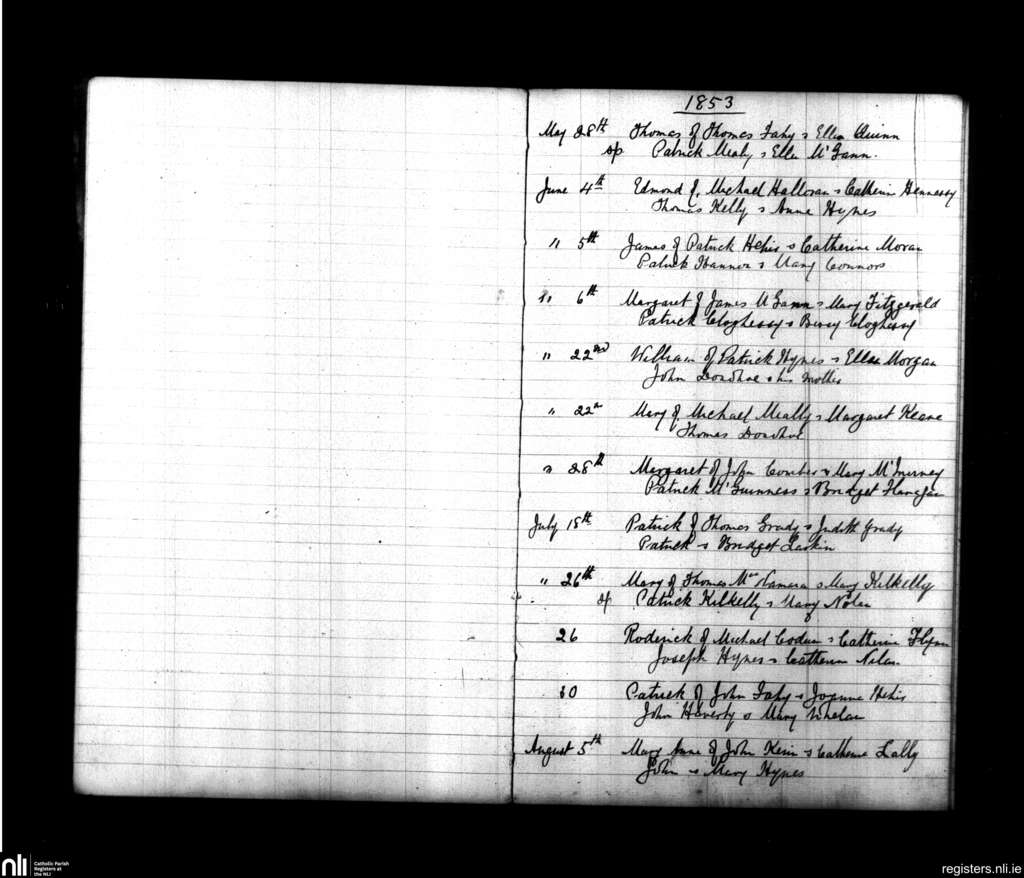 1853
May 28th Thomas of Thomas Fahy & Ellen Quinn
sp Patrick Mealy & Ellen McGann.
June 4th Edmond of Michael Halloran & Catherin Hennessy
Thomas Kelly & Anne Hynes
" 5th James of Patrick Hehir & Catherine Moran
Patrick Hannon & Mary Connors
" 6th Margaret of James McGann & Mary Fitzgerald
Patrick Cloghessy & Bessy Cloghessy
" 22nd William of Patrick Hynes & Ellen Morgan
John Donohoe & his mother
" 22n Mary of Michael Meally & Margaret Keane
Thomas Donohoe
" 28th Margaret of John Comber & Mary McInerney
Patrick McGuinness & Bridget Flanagan
July 18th Patrick of Thomas Grady & Judith Grady
Patrick & Bridget Larkin
" 26th Mary of Thomas MacNamara & Mary Kilkelly
sp Patrick Kilkelly & Mary Nolan
26 Roderick of Michael & Catherin Flynn
Joseph Hynes & Catherin Nilan
30 Patrick of John Fahy & Joanna Hehir
John Haverty & Mary Whelan
August 5th Mary Anne of John & Catherine Lally
John & Mary Hynes
nli
Catholic Parish
Registers at
the NLI
registers.nli.ie